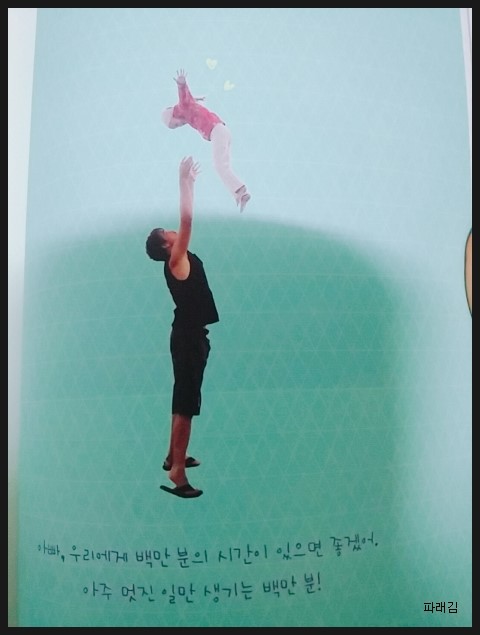 아빠, 우리에게 백만 분의 시간이 있으면 좋겠어.
아주 멋진 일만 생기는 백만 분!
파래김